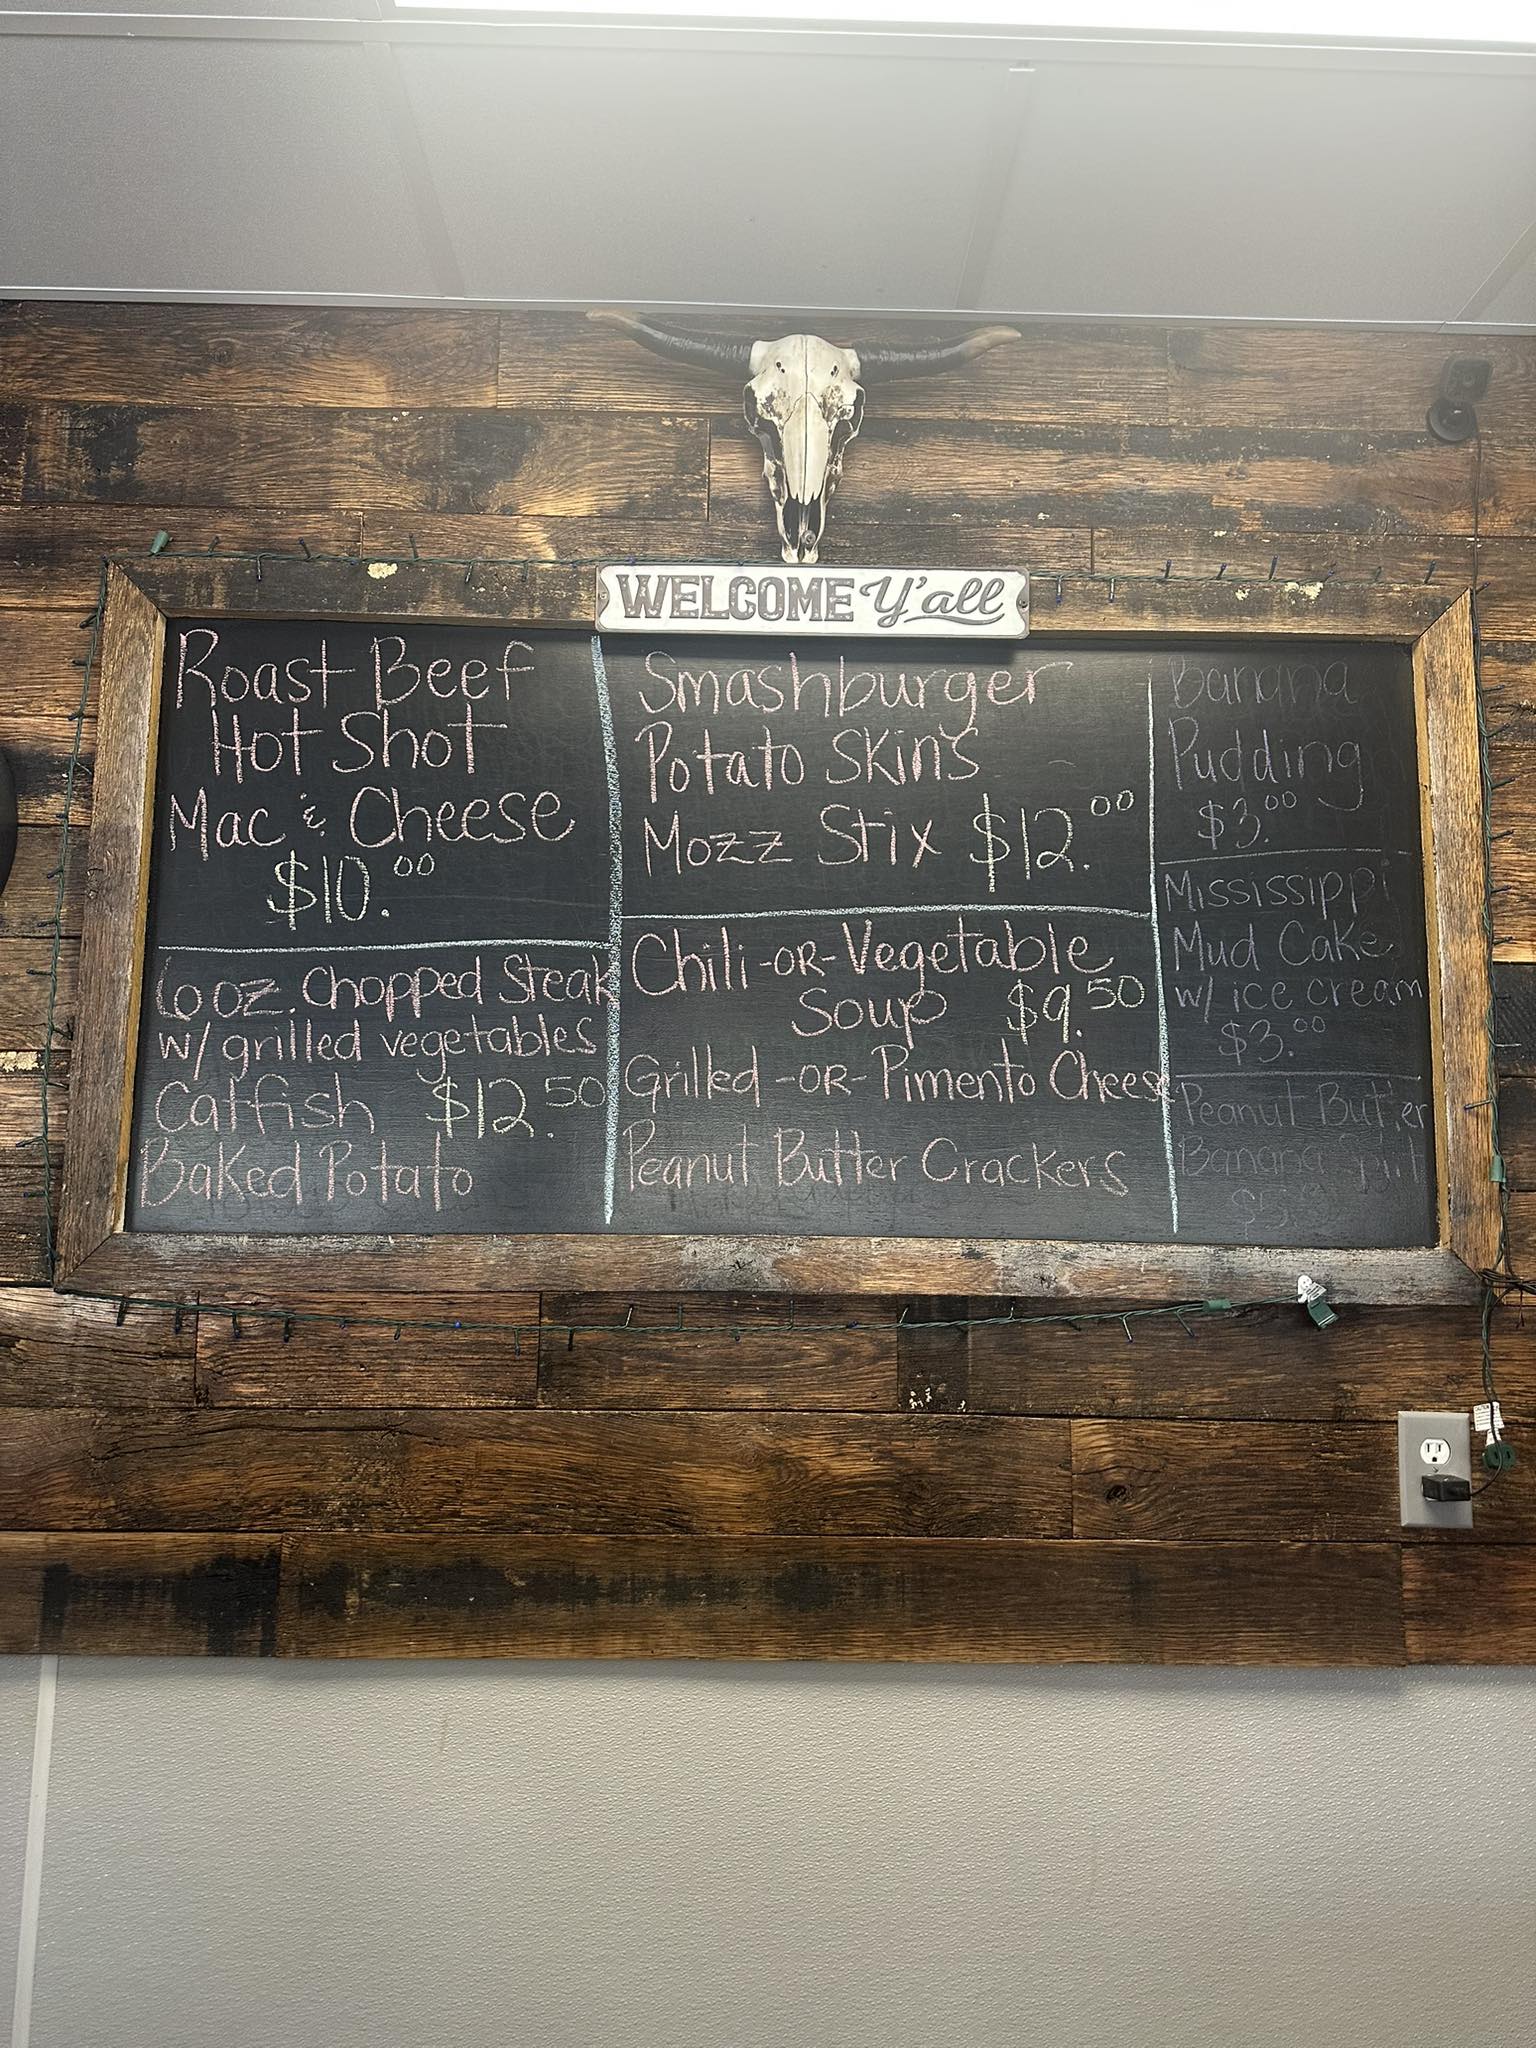 WELCOME Y'all
Roast Beef
Hot Shot
Mac & Cheese
$10.00
6 oz. Chopped Steak
w/ grilled vegetables
Catfish $12.50
Baked Potato
Smashburger
Potato Skins
Mozz Stix $12.00
Chili -OR- Vegetable
Soup $9.50
Grilled -OR- Pimento Cheese
Peanut Butter Crackers
Banana
Pudding
$3.00
Mississippi
Mud Cake
w/ ice cream
$3.00
Peanut Butter
Banana